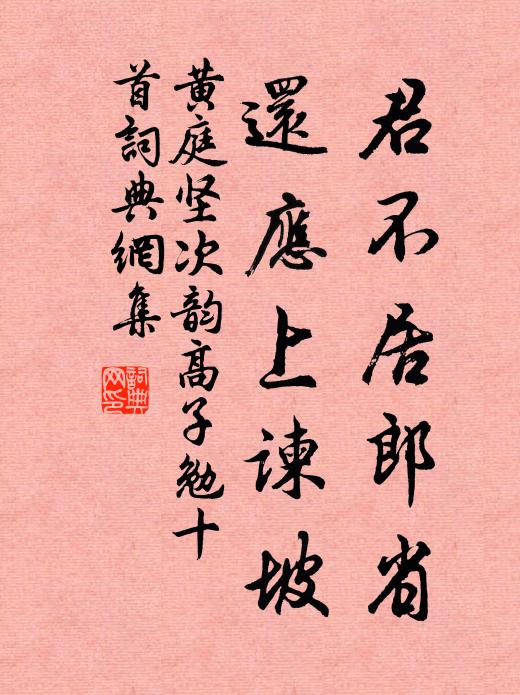 君不居郎省
還應上諫坡
黄庭坚次韵高子勉十
首詞典網集
詞典
网印